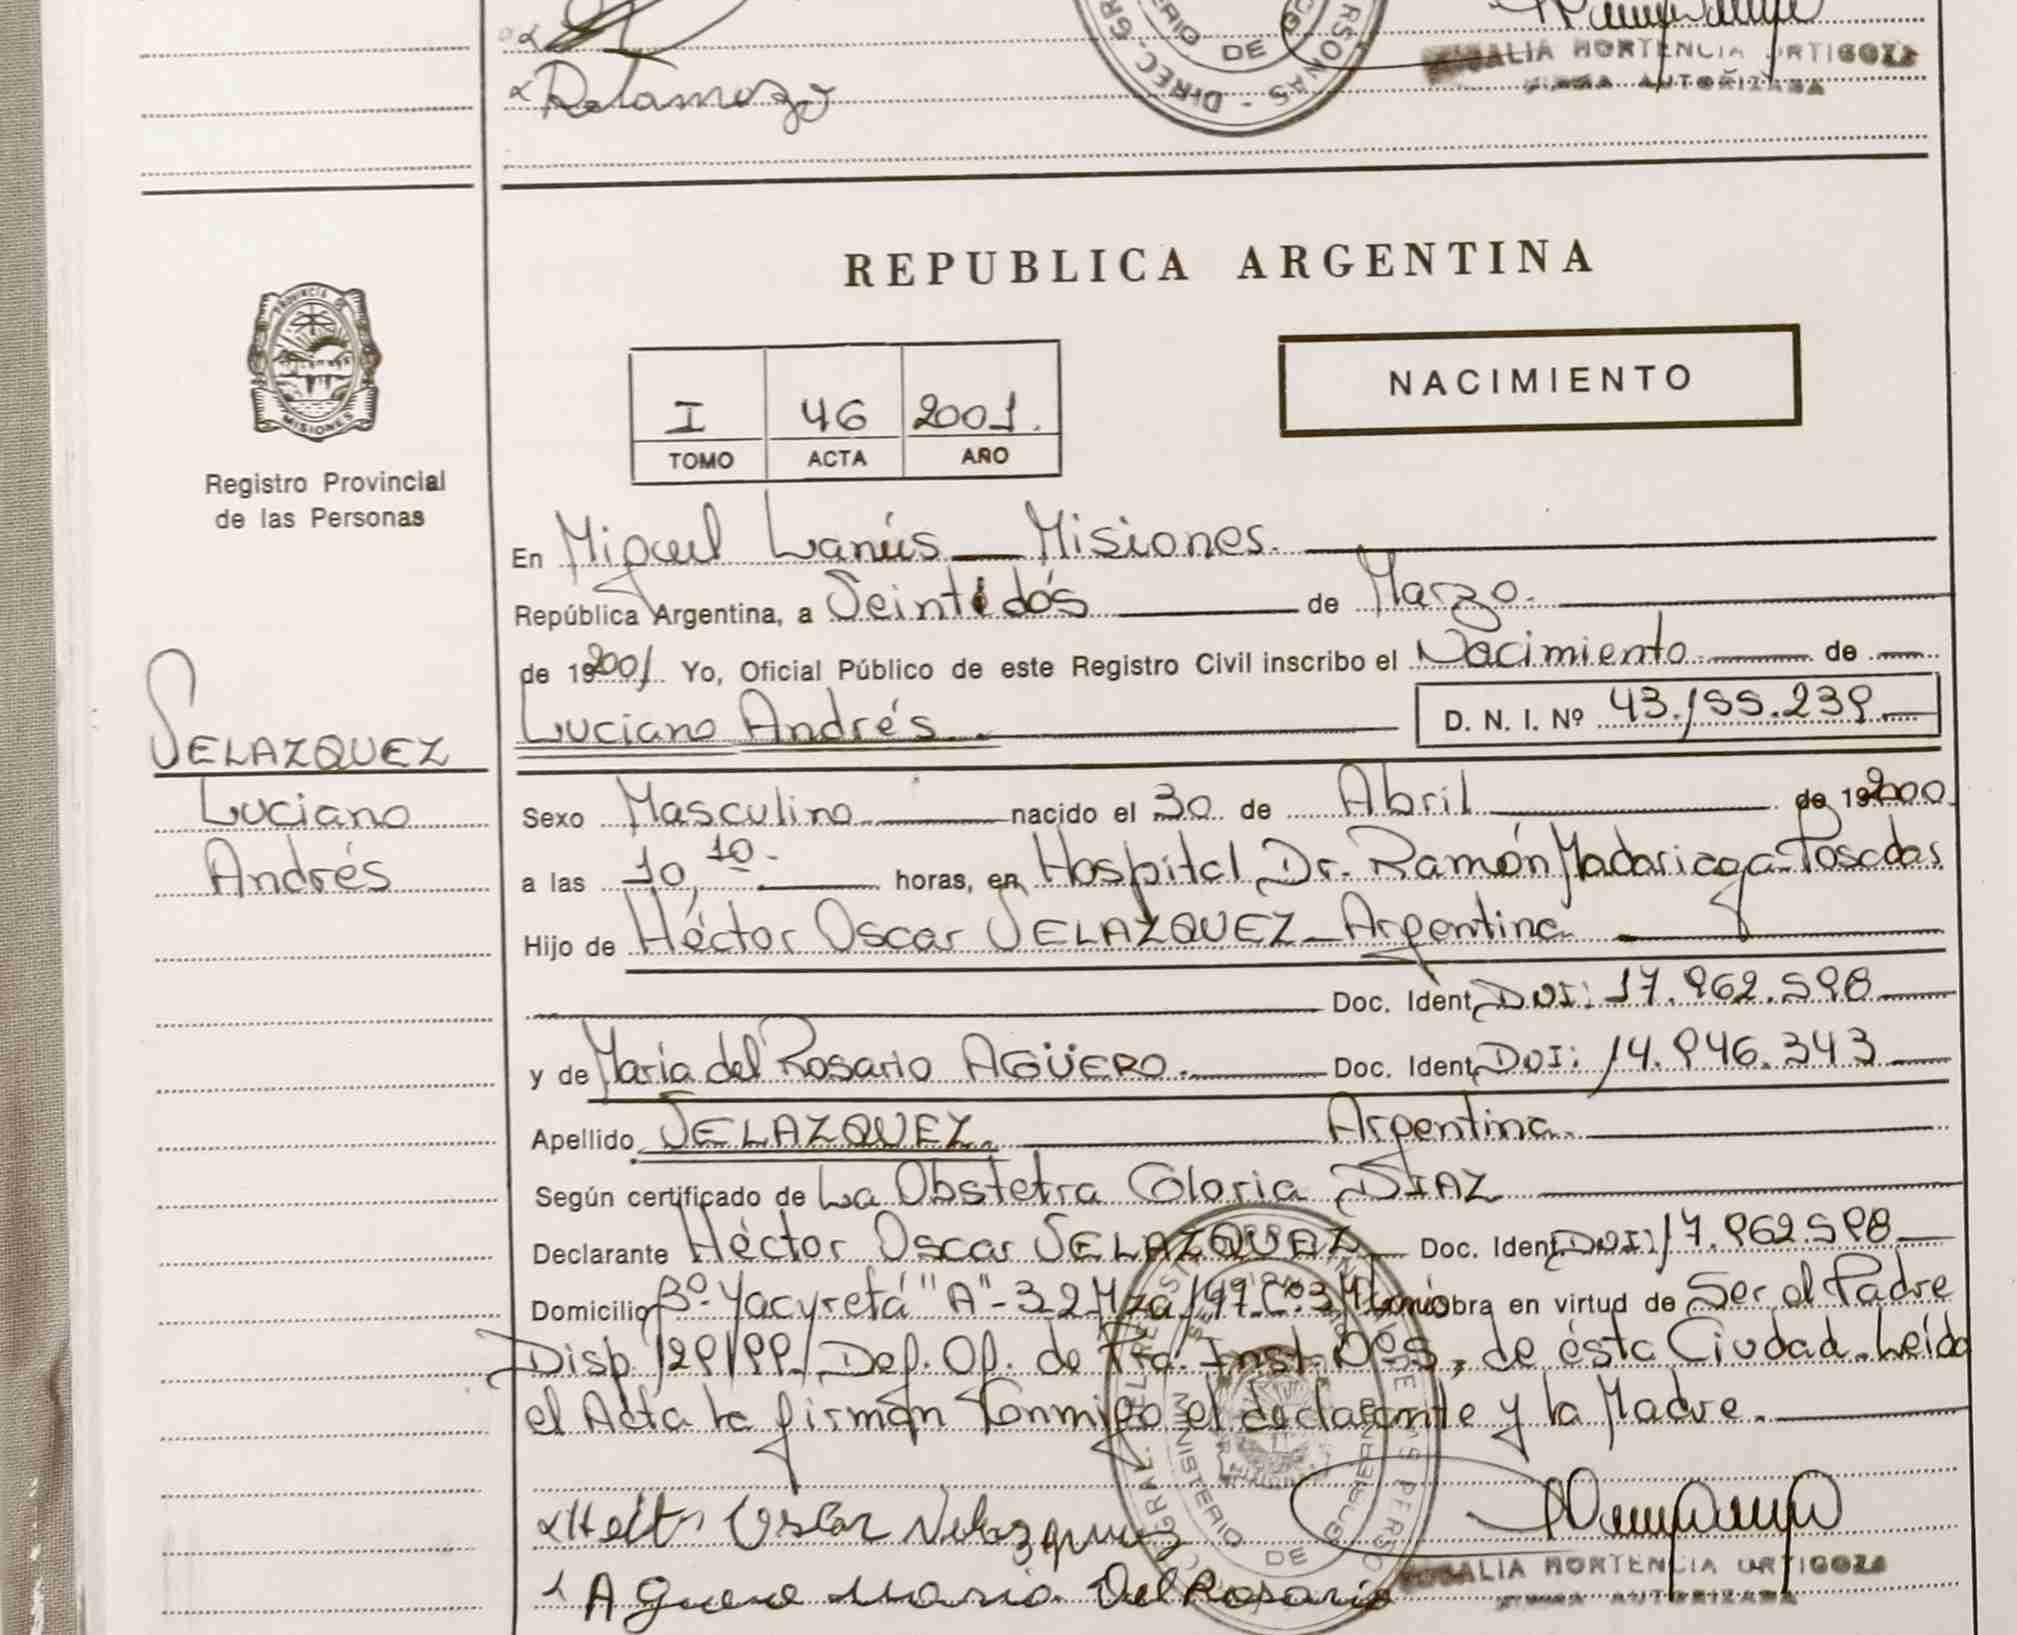 Delamozo
DIREC. GR
SONAS
ERIO DE GO
ROSALIA HORTENCIA ORTIGOZA
FIRMA AUTORIZADA
REPUBLICA ARGENTINA
PROVINCIA DE
MISIONES
Registro Provincial
de las Personas
I 46 2001.
TOMO ACTA AÑO
NACIMIENTO
En Miguel Lanús — Misiones.
República Argentina, a Veintidós de Marzo.
de 192001 Yo, Oficial Público de este Registro Civil inscribo el Nacimiento de
Luciano Andrés. D. N. I. Nº 43.155.239
VELAZQUEZ
Luciano
Andrés
Sexo Masculino nacido el 30 de Abril de 192000
a las 10,10- horas, en Hospital Dr. Ramón Madariaga-Posadas
Hijo de Héctor Oscar VELAZQUEZ - Argentina
Doc. Ident. DNI: 17.962.598
y de María del Rosario AGÜERO. Doc. Ident. DNI: 14.946.343
Apellido VELAZQUEZ. Argentina.
Según certificado de La Obstetra Gloria DIAZ
Declarante Héctor Oscar VELAZQUEZ Doc. Ident. DNI 17.962.598
Domicilio Bº-Yacyretá "A"-32 Mza 149 Cº3 M. Lanús obra en virtud de Ser el Padre
Disp. 129/99/ Def. Of. de 1ra. Inst. de ésta Ciudad. Leída
el Acta la firmán Conmigo el declarante y la Madre.
Héctor Oscar Velazquez
Aguero Maria Del Rosario
MINISTERIO DE GOBIERNO
ROSALIA HORTENCIA ORTIGOZA
FIRMA AUTORIZADA